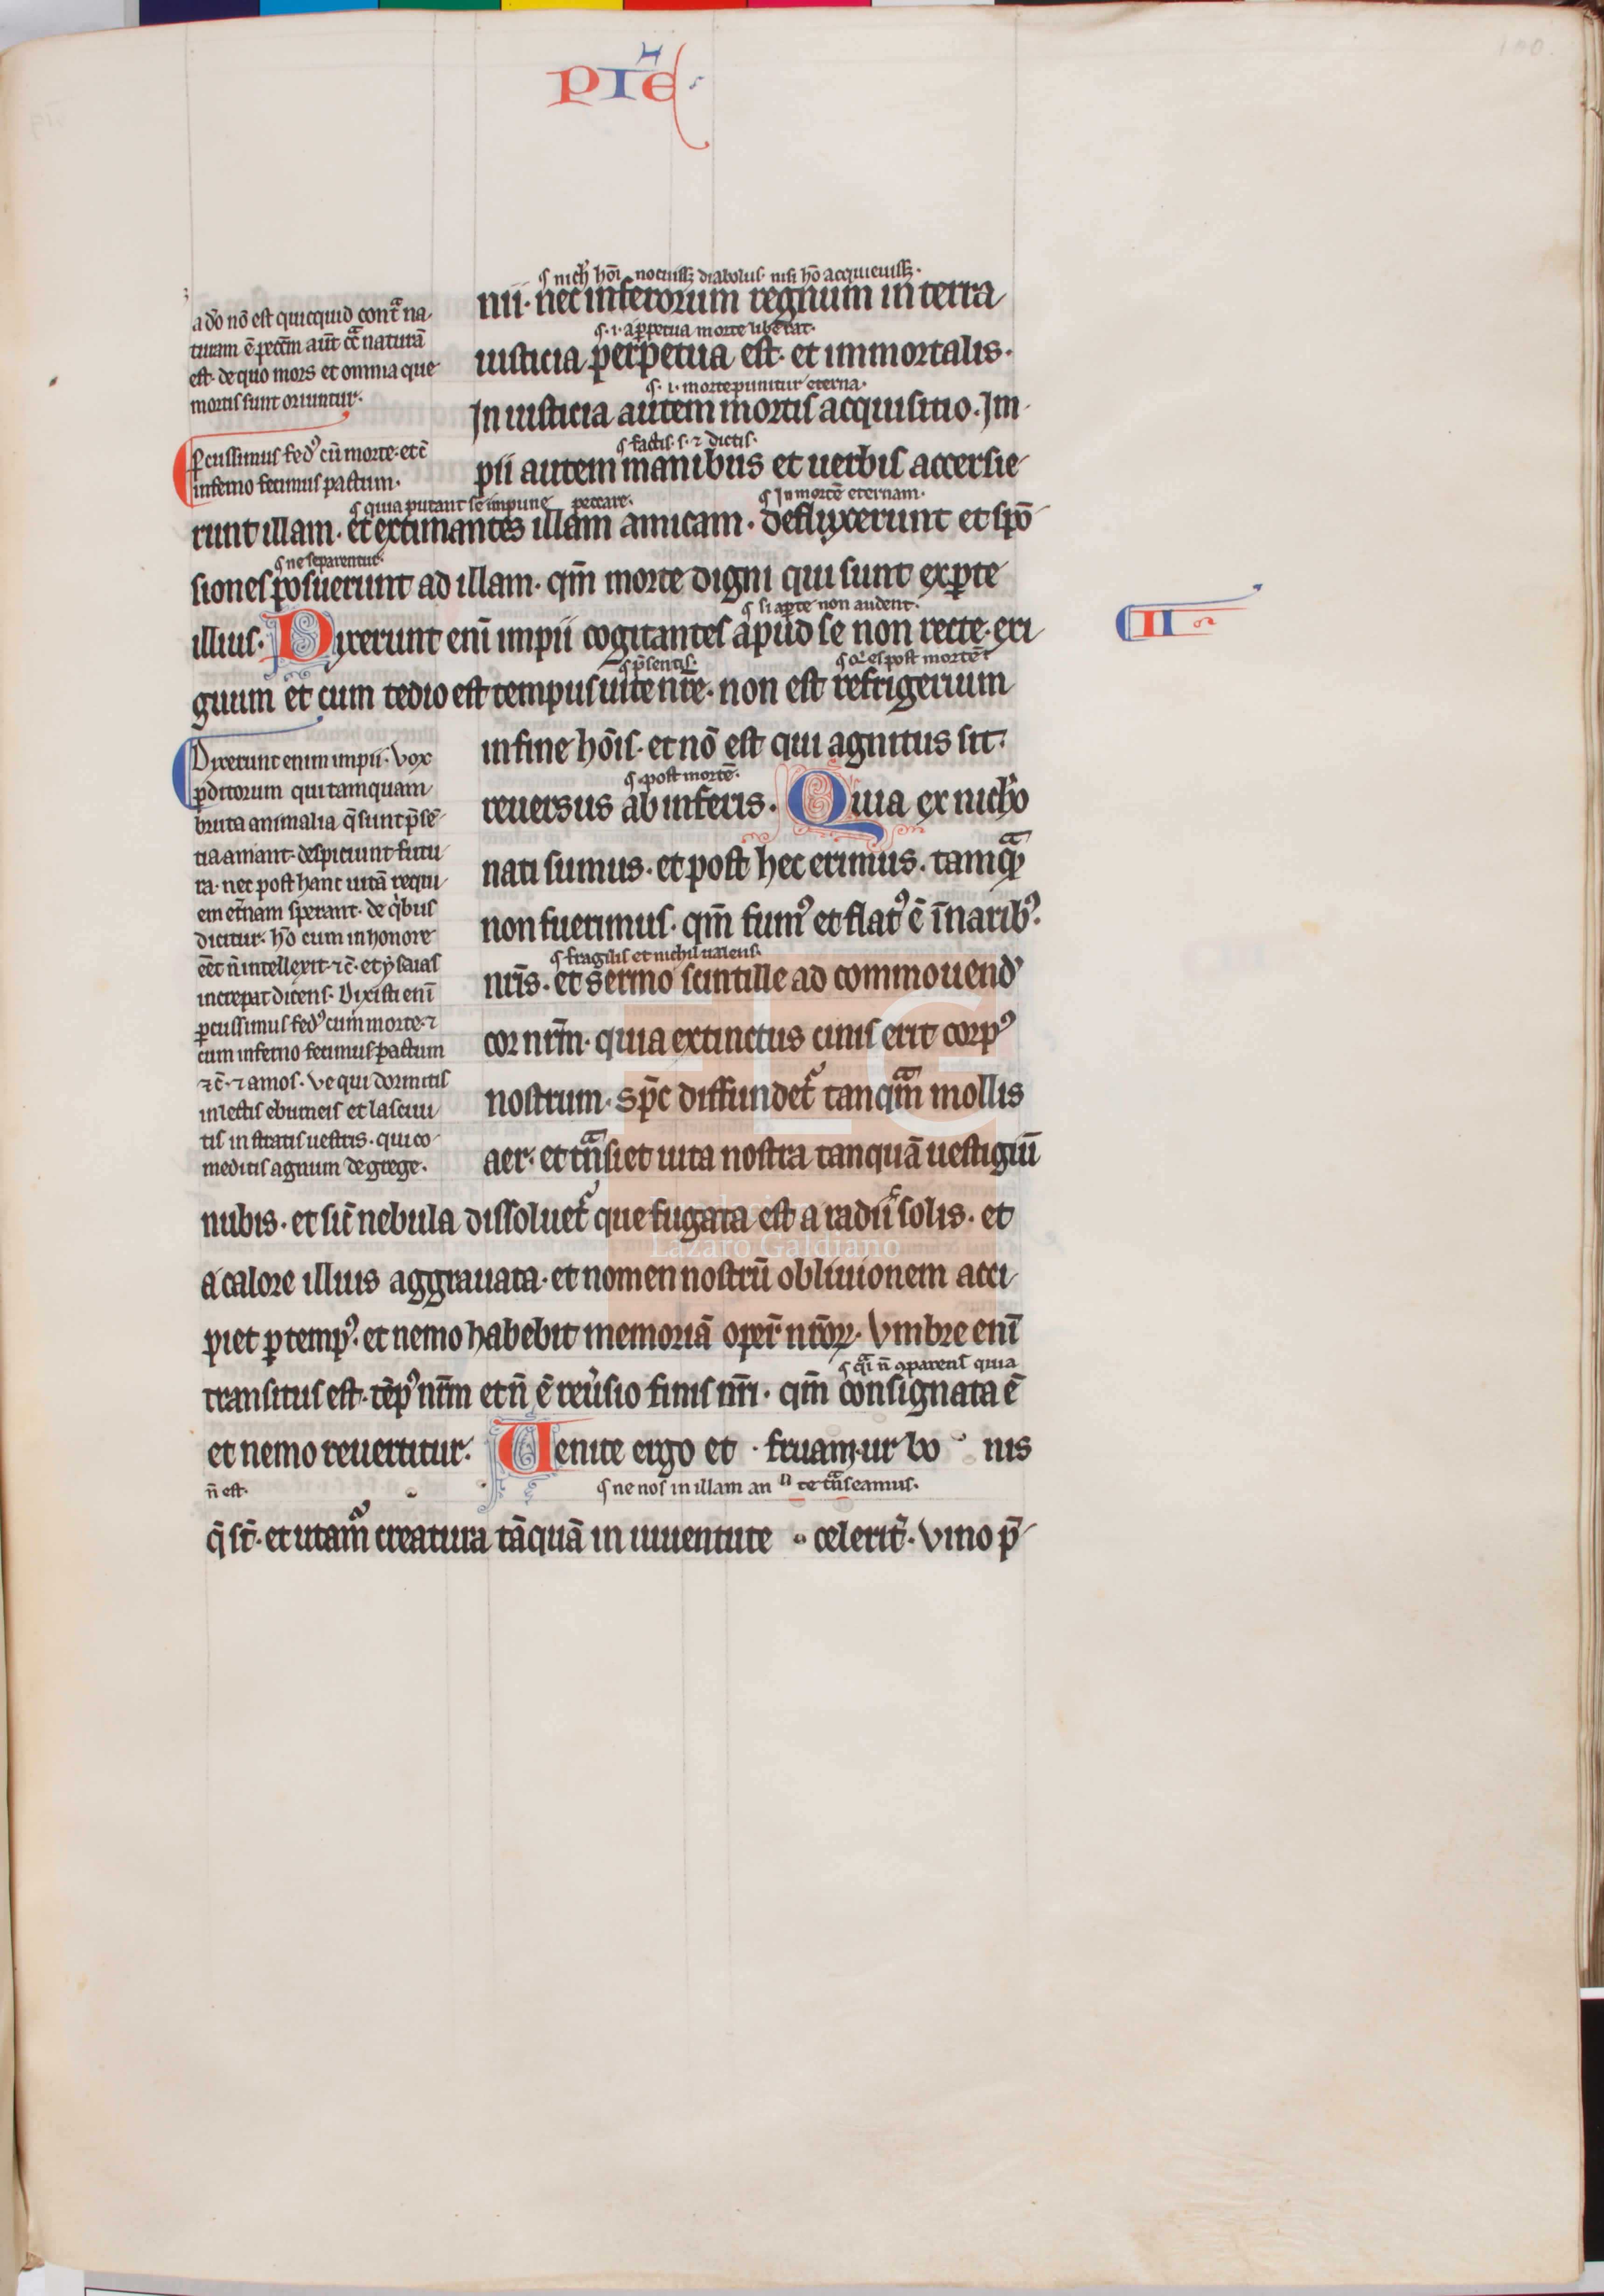 PIĒ
100.
a dō nō est quicquid cont̄ na-
turam ē peccm̄ aut̄ cͣ naturā
est. de quo mors et omnia que
mortis sunt oriuntur.
ꝑcussimus fedꝰ cū morte. et c̄
inferno fecimus pactum.
nich̄ hoī nocuissꝫ diabolus. nisi hō acquieuissꝫ.
nii. nec inferorum regnum in terra
.i. a ꝑpetua morte liberat.
iusticia perpetua est. et immortalis.
.i. morte punitur eterna.
Iniusticia autem mortis acquisitio. Im-
factis .s. ⁊ dictis.
pii autem manibus et uerbis accersie-
quia putant se impune peccare. In mortē eternam.
runt illam. et extimantes illam amicam. defluxerunt et spō-
ne separentur.
siones posuerunt ad illam. qm̄ morte digni qui sunt ex ꝑte
si aꝑte non audent.
illius. Dixerunt enī impii cogitantes apud se non recte. exi-
II
p̄sentis. post mortē
guum et cum tedio est tempus uite nr̄e. non est refrigerium
in fine hōis. et nō est qui agnitus sit
post mortē.
reuersus ab inferis. Quia ex nich̄o
nati sumus. et post hec erimus. tamqͣ
non fuerimus. qm̄ fumꝰ et flatꝰ ē ī naribꝰ.
fragilis et nichil ualens.
nr̄is. et sermo scintille ad commouendꝰ
cor nrm̄. quia extinctus cinis erit corpꝰ
nostrum. sp̄c diffundet᷑ tanqͣm mollis
aer. et tͣnsiet uita nostra tanquā uestigiū
Dixerunt enim impii. Vox
ꝑditorum qui tamquam
bruta animalia q̄ sunt p̄sē-
tia amant. despiciunt futu-
ra. nec post hanc uitā requi-
em et̄nam sperant. de qⁱbus
dicitur. hō cum in honore
eēt n̄ intellexit. ⁊ c̄. et ysaias
increpat dicens. Dixisti enī
ꝑcussimus fedꝰ cum morte. ⁊
cum inferno fecimus pactum
⁊ c̄. ⁊ amos. Ve qui dormitis
in lectis eburneis et lasciui-
tis in stratis uestris. qui co-
meditis agnum de grege.
nubis. et sic̄ nebula dissoluet᷑ que fugata est a radiis solis. et
a calore illius aggrauata. et nomen nostrū obliuionem acci-
piet ꝑ tempꝰ. et nemo habebit memoriā oper̄ nr̄oꝝ. Vmbre enī
qͣi n̄ apparens quia
transitus est. tēpꝰ nrm̄ et n̄ ē reu̓sio finis nr̄i. qm̄ consignata ē
et nemo reuertitur. Venite ergo et fruamur bo nis
n̄ est.
ne nos in illam an te tͣnseamus.
q̄ st̄. et utam᷑ creatura tāquā in iuuentute celerit̓. Vino p̄-
FLG
Fundación
Lázaro Galdiano